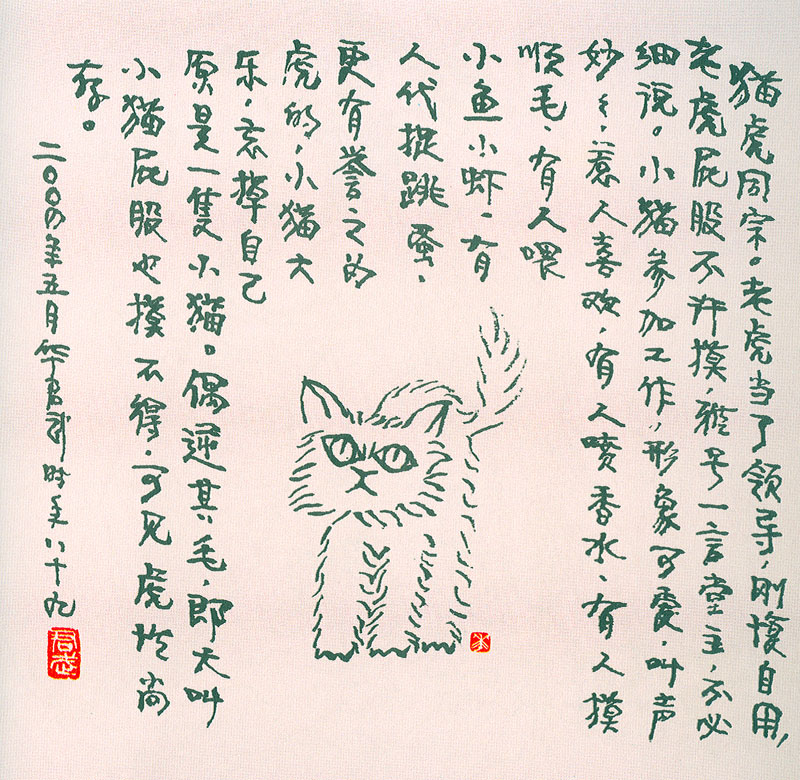 猫虎同宗。老虎当了领导,刚愎自用,
老虎屁股不许摸,雅号一言堂主,不必
细说。小猫参加工作,形象可愛,叫声
妙々,惹人喜欢,有人喷香水、有人摸
顺毛、有人喂
小鱼小虾、有
人代捉跳蚤、
更有誉之为
虎的,小猫大
乐,忘掉自己
原是一隻小猫。偶逆其毛,即大叫
小猫屁股也摸不得,可见虎性尚
存。
二〇〇四年五月华君武时年八十九
君武